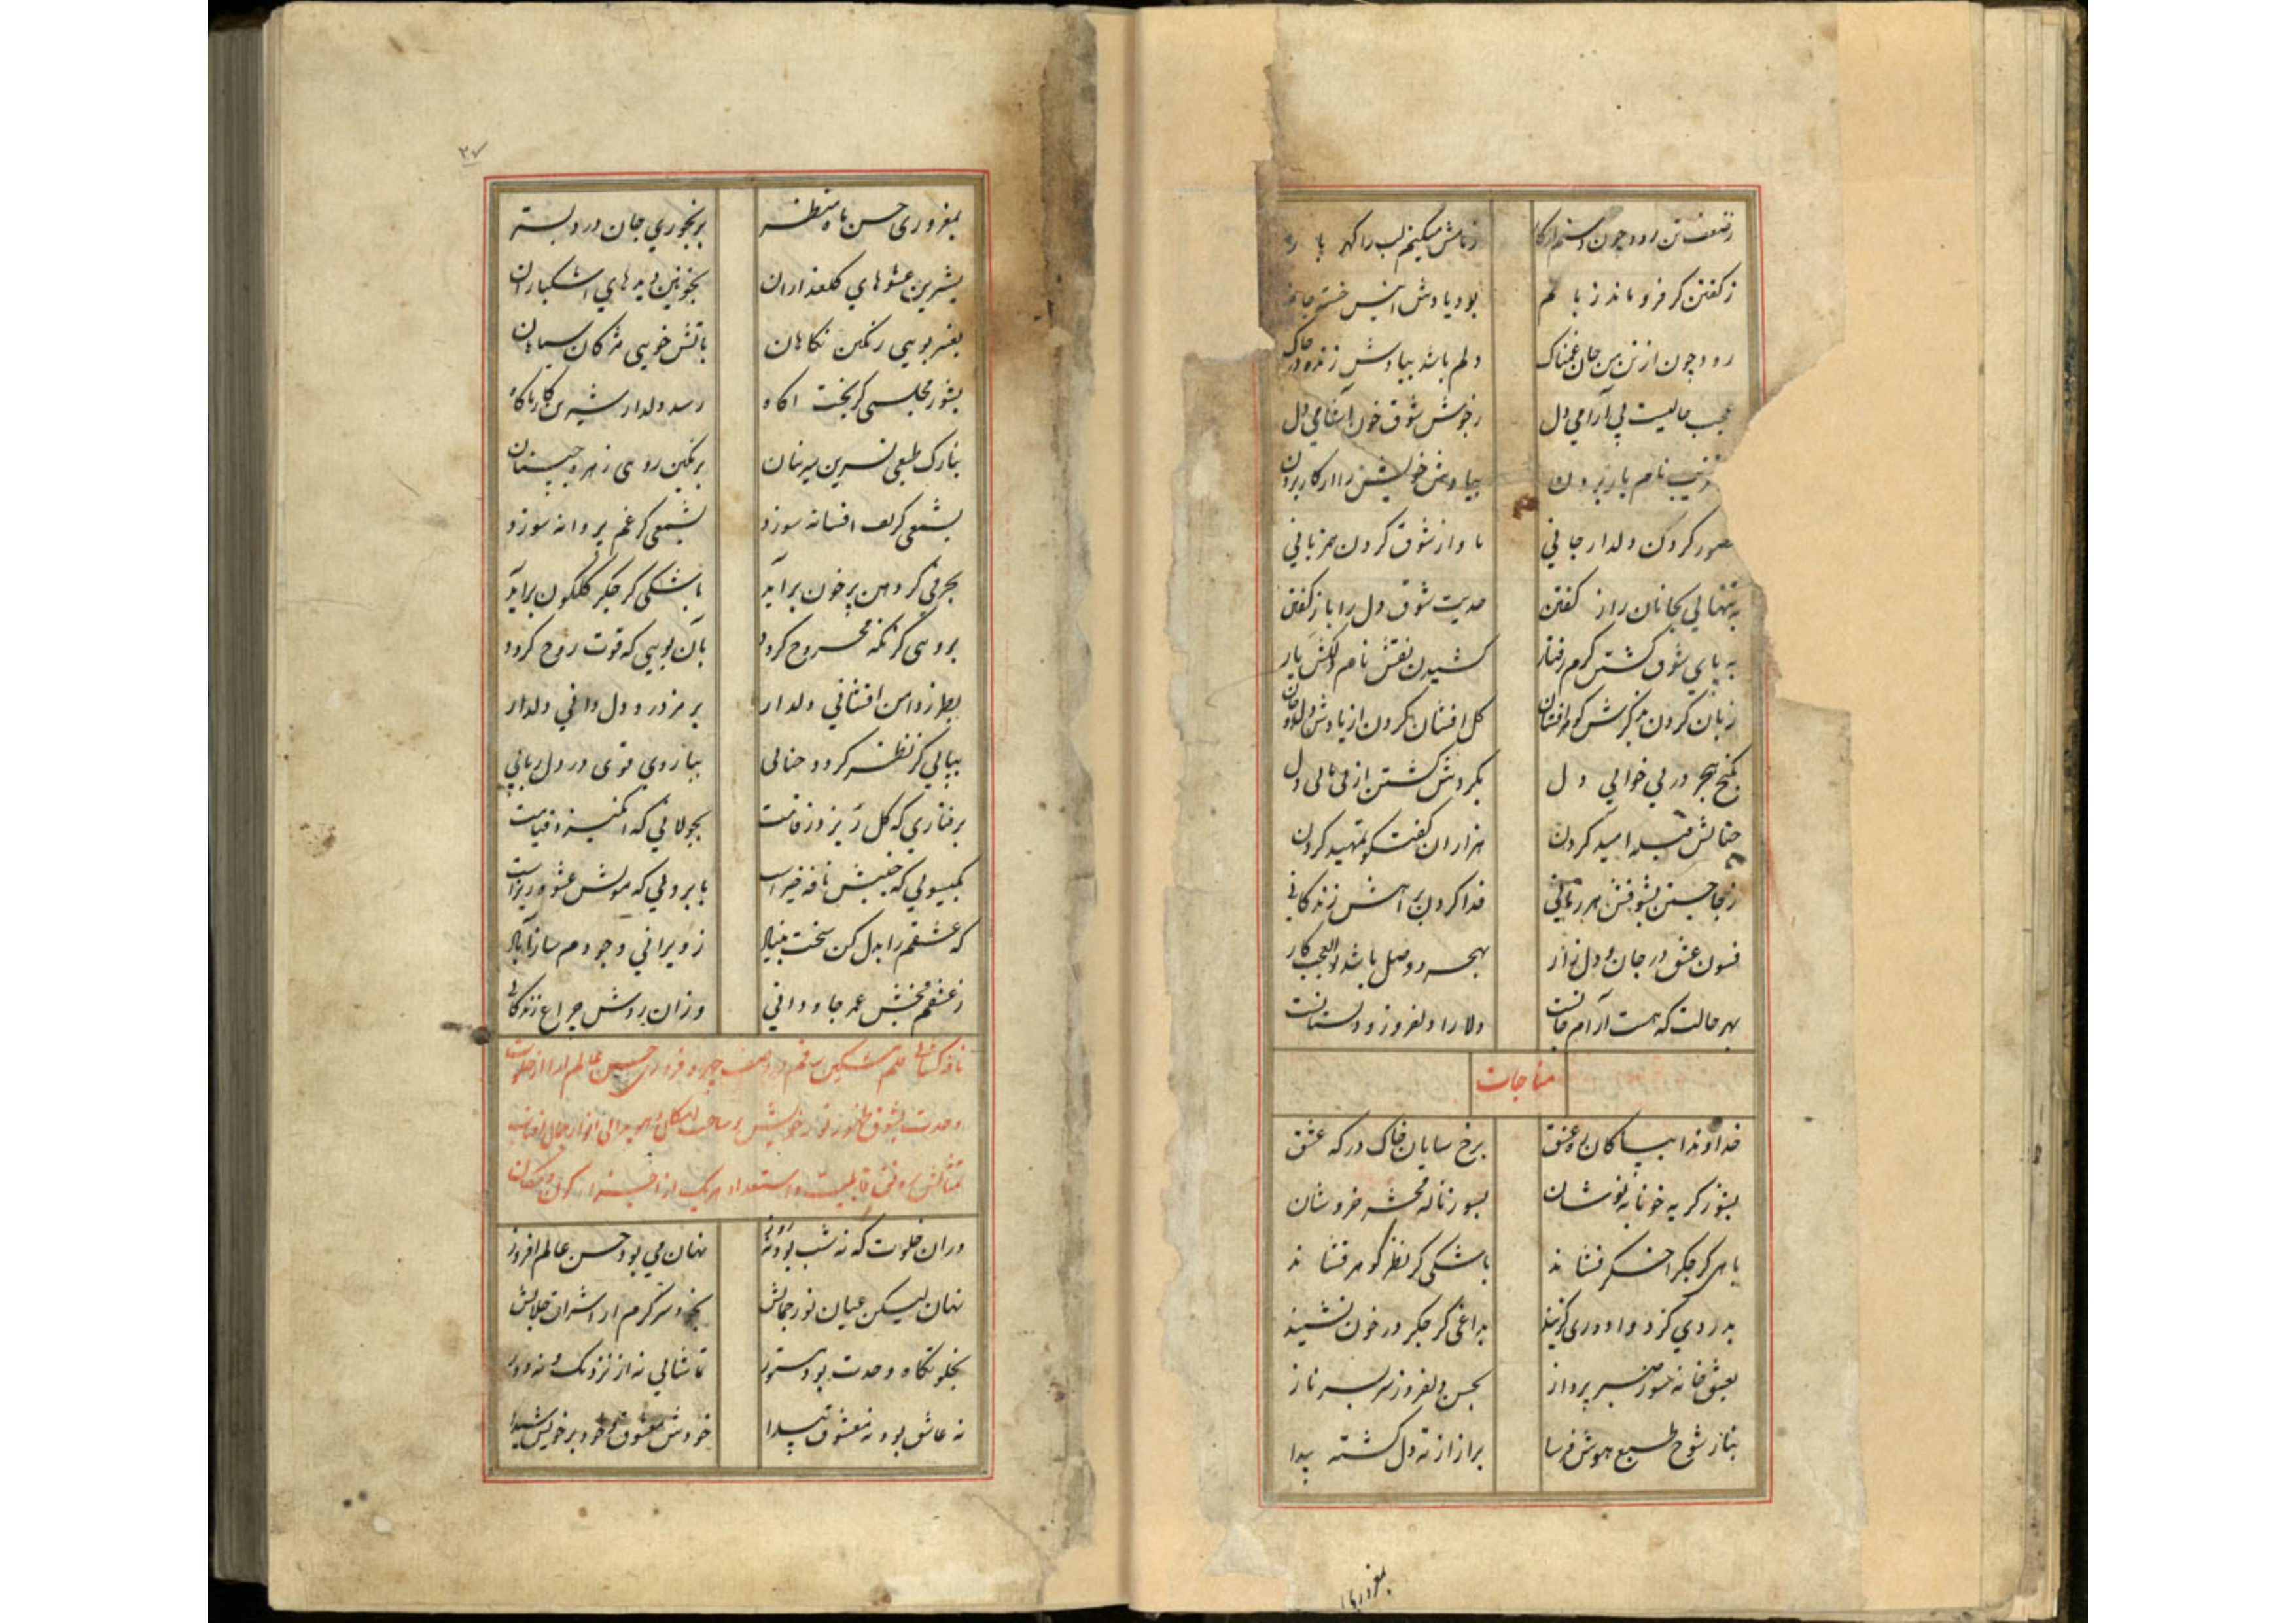 ز ضعف تن رود چون دستم از کار ز نامش میکنم لب را گهر بار
ز گفتن گر فرو ماند زبانم بود یادش انیس خسته جانم
رود چون از تن من جان غمناک دلم باشد بیادش زنده در خاک
عجب حالیست بی آرامی دل ز جوش شوق خون آشامی دل
نام یار بردن بیادش خویش را از کار بردن
تصور کردن دلدار جانی باو از شوق کردن همزبانی
به تنهایی بجانان راز گفتن حدیث شوق دل را باز گفتن
به پای شوق گشتن گرم رفتار کشیدن نقش نام دلکش یار
زبان کردن بذکرش گوهر افشان گل افشان کردن از یادش
بکنج هجر در بی خوابی دل بگردش گشتن از بی تابی دل
خیالش قبله امید کردن هزاران گفتگو تمهید کردن
ز جا جستن بشوقش هر زمانی فدا کردن براهش زندگانی
فسون عشق در جان و دل زار بهجر و وصل باشد بوالعجب کار
بهر حالت که هست آرام جانست دلارا و دلفروز و دلستانست
مناجات
خداوندا ببیباکان ره عشق برخ سایان خاک درگه عشق
بسوز گریه خونابه نوشان بسوز ناله محشر خروشان
باهی کز جگر اخگر فشاند باشکی کز نظر گوهر فشاند
بدردی کز دوا دوری گزیند بداغی کز جگر در خون نشیند
بعشق خانه سوز صبر پرداز بحسن دلفروز سر بسر ناز
بناز شوخ طبع هوش فرسا براز از ته دل گشته پیدا
بمغروری
۲۷
بمغروری حسن ماه منظر برنجوری جان درد بستر
بشیرین عشوهای گلعذاران بخونین دیدهای اشکباران
بعنبر بویی رنگین نگاهان باتش خویی مژگان سیاهان
بشور مجلسی کز بخت آگاه رسد دلدار شیرین کار ناگاه
بنازک طبعی نسرین سرینان برنگین روی زهره جبینان
بشمعی کز تف افسانه سوزد بشمعی کز غم پروانه سوزد
بحرفی کز دهن پر خون برآید باشکی کز جگر گلگون برآید
بروی کز نگه مجروح گردد بآن بویی که قوت روح گردد
بطرز دامن افشانی دلدار برمز درد دل دانی دلدار
بپایی کز نظر گردد حنایی ببازوی قوی در دل ربایی
برفتاری که گل ریزد ز قامت بجولانی که انگیزد قیامت
بگیسویی که جنبش نافه خیز است بابرویی که مویش عشوه ریز است
که عشقم را بدل کن سخت بنیاد ز ویرانی وجودم ساز آباد
ز عشقم بخش عمر جاودانی وزان روشن چراغ زندگانی
نافه کشایی قلم مشکین رقم در وصف چهره فروزی حسن عالم ارا از خلوت
وحدت بشوق ظهور نور خویش بر ساحت امکان
قابلیت و استعداد هر یک از اجزاء کون و مکان
دران خلوت که نه شب بود و نه روز نهان می بود حسن عالم افروز
نهان لیکن عیان نور جمالش بخود سرگرم از اشراق جلالش
بخلوتگاه وحدت بود مستور تماشایی نه از نزدیک و نه دور
نه عاشق بود نه معشوق پیدا خودش معشوق و خود بر خویش شیدا